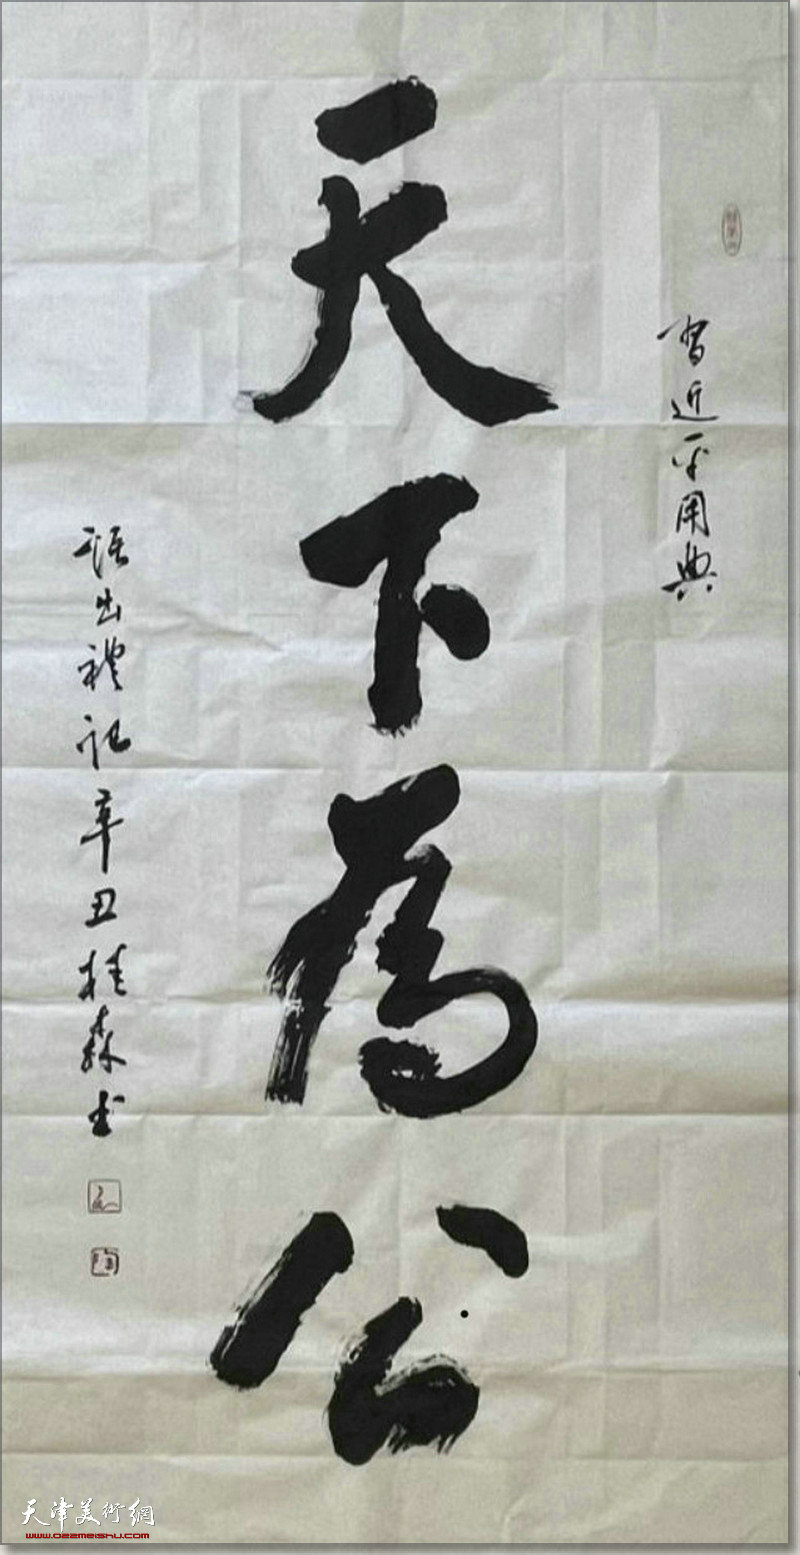 习近平用典
天下為公
语出禮记辛丑桂森书
天津美術網
www.022meishu.com